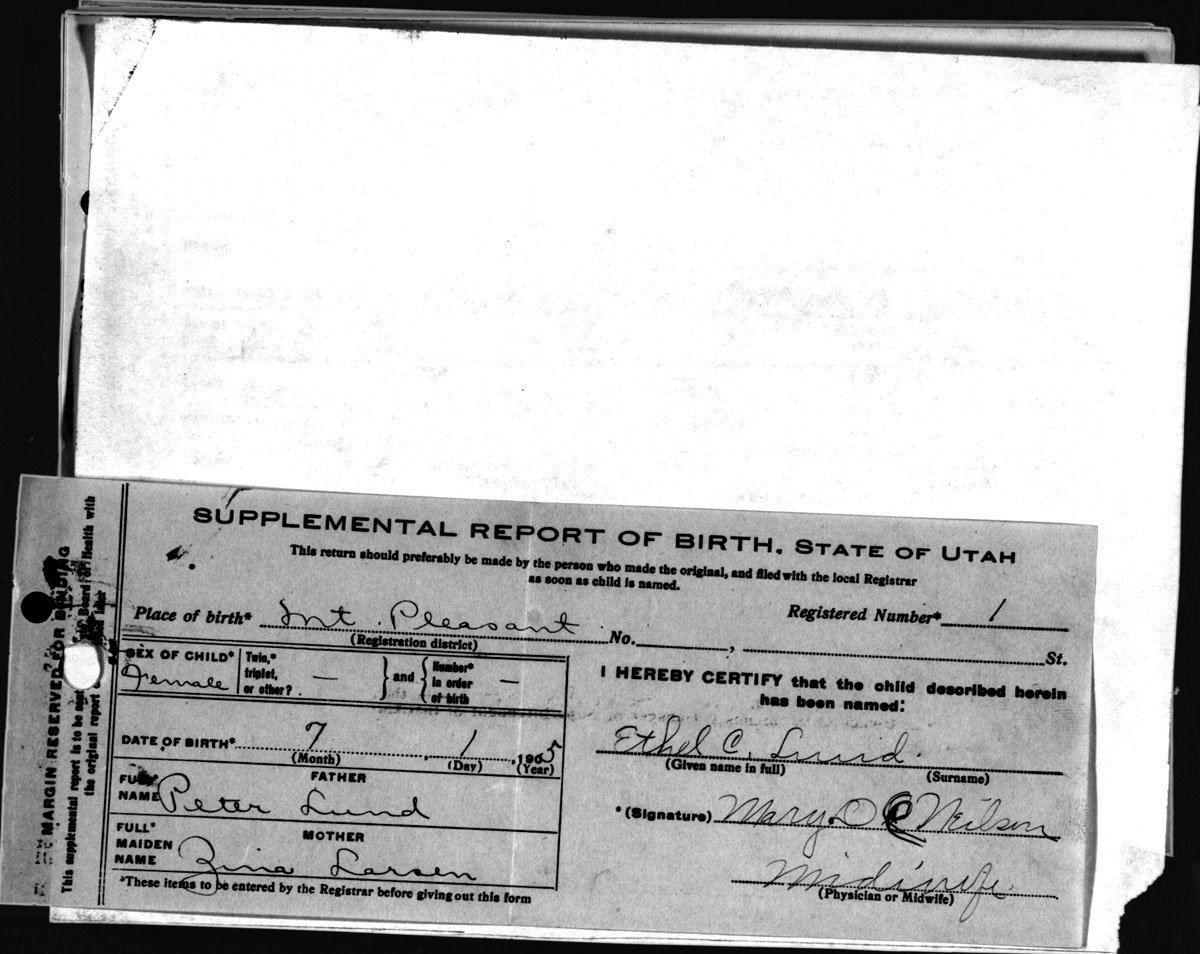 SUPPLEMENTAL REPORT OF BIRTH. STATE OF UTAH
This return should preferably be made by the person who made the original, and filed with the local Registrar
as soon as child is named.
Place of birth* Mt. Pleasant No. , St.
(Registration district)
Registered Number* 1
SEX OF CHILD* Female
Twin,* triplet, or other? — } and { Number* in order of birth —
DATE OF BIRTH* 7 , 1 , 1905
(Month) (Day) (Year)
FATHER
FULL* NAME Peter Lund
MOTHER
FULL* MAIDEN NAME Zina Larsen
*These items to be entered by the Registrar before giving out this form
I HEREBY CERTIFY that the child described herein
has been named:
Ethel C. Lund.
(Given name in full) (Surname)
*(Signature) Mary D C Neilson
Midwife.
(Physician or Midwife)
MARGIN RESERVED FOR BINDING
This supplemental report is to be sent Board of Health with
the original report